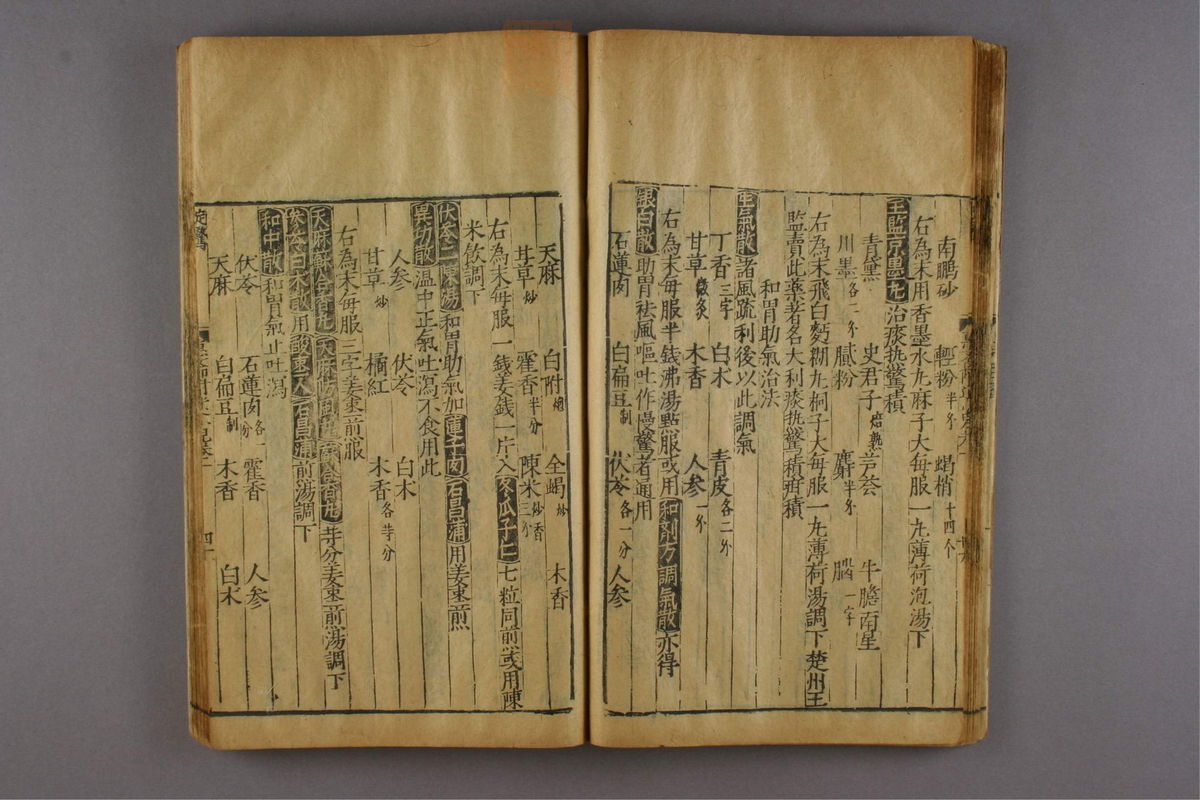 南鵬砂 輕粉半分 蝎梢十四个
右為末用香墨水丸麻子大每服一丸薄荷泡湯下
王監京墨丸治痰热驚積
青黛 史君子焙熟 芦荟 牛膽南星
川墨各二分 膩粉 麝半分 腦一字
右為末飛白麪糊丸桐子大每服一丸薄荷湯調下楚州王
監賣此藥著名大利痰热驚積疳積
和胃助氣治法
生氣散諸風疏利後以此調氣
丁香三字 白术 青皮各二分
甘草微炙 木香 人参一分
右為末每服半錢沸湯點服或用和剂方調氣散亦得
銀白散助胃袪風嘔吐作慢驚者通用
石蓮肉 白扁豆制 伏苓各一分 人参
天麻 白附炮 全蝎炒 木香
甘草炒 霍香半分 陳米三分炒香
右為末每服一錢姜錢一片入冬瓜子仁七粒同前煎或用陳
米飲調下
伏苓二陳湯和胃助氣加蓮子肉石昌蒲用姜枣煎
異功散温中正氣吐瀉不食用此
人参 伏苓 白术
甘草炒 橘紅 木香各半分
右為末每服三字姜枣煎服
天麻蘇合香丸天麻防風丸蘇合香丸半分姜枣煎湯調下
参苓白术散用酸枣人石昌蒲煎湯調下
和中散和胃氣止吐瀉
伏苓 石蓮肉各一分 霍香 人参
天麻 白扁豆制 木香 白术
定驚
四十